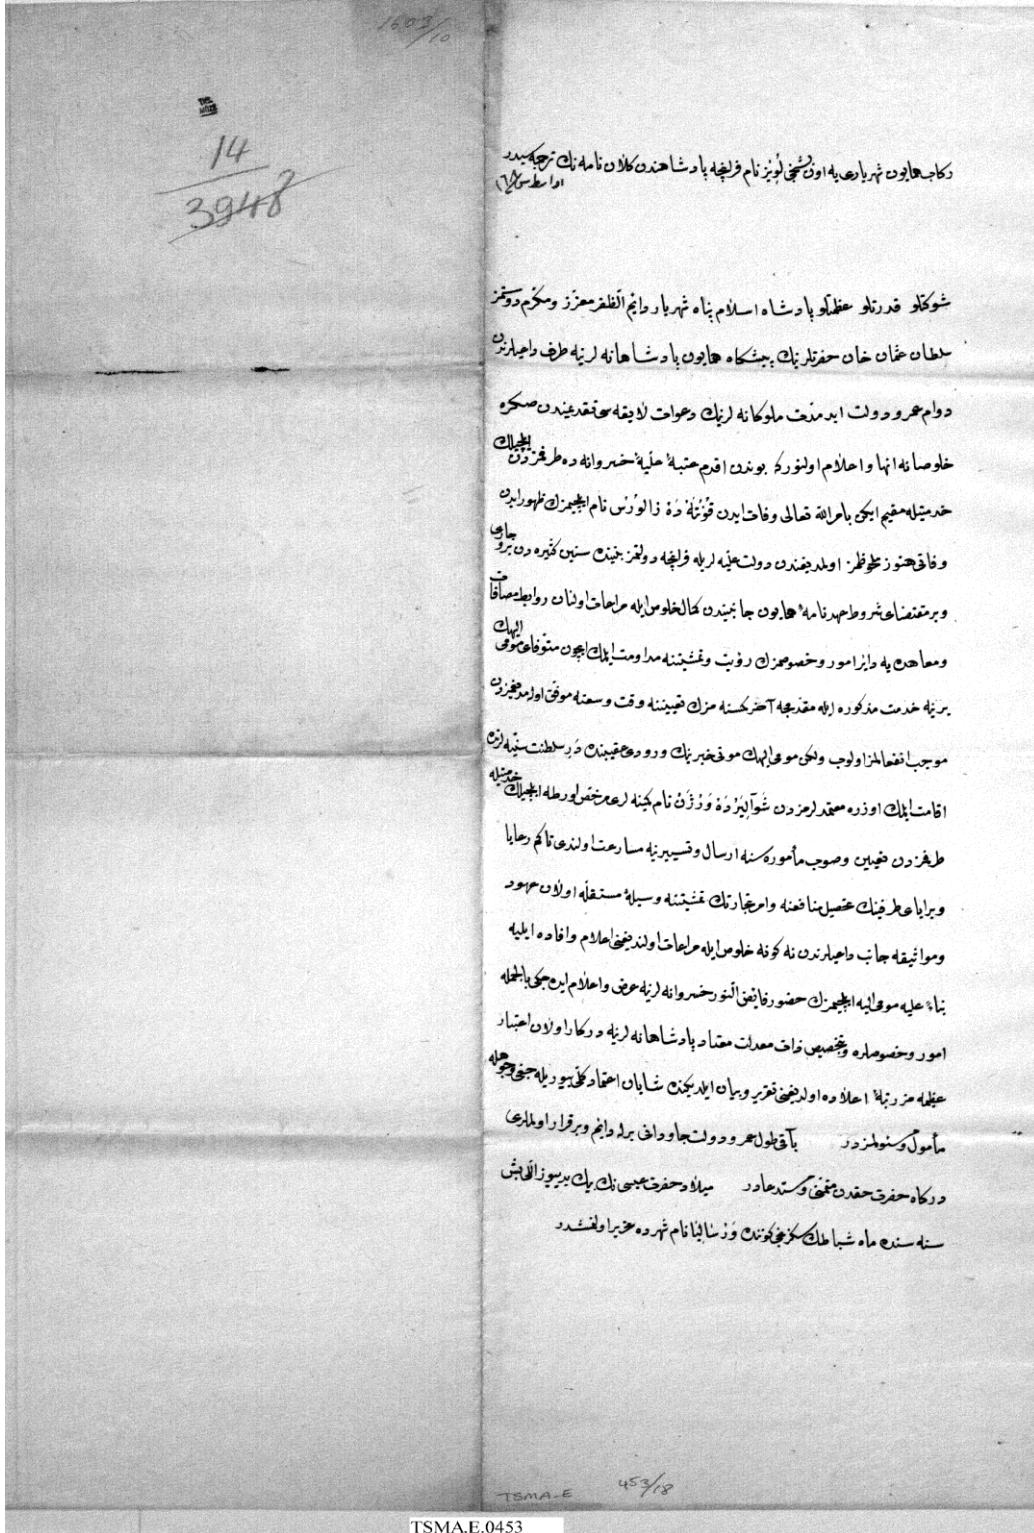 1603/10
14
3948
ركاب همايون شهرياری يه اون بشنجی لويز نام فرانچه پادشاهندن كلان نامه نك ترجمه سيدر
شوكتلو قدرتلو عظمتلو پادشاه اسلام پناه شهريار دائم الظفر معزز ومكرم دوستمز
سلطان عثمان خان حضرتلرينك پيشكاه همايون پادشاهانه لرينه طرف داعيلرندن
دوام عمر ودولت ابد مدت ملوكانه لرينك دعوات لايقه سی تقديمندن صكره
خلوصانه انها واعلام اولنور كه بوندن اقدم عتبهٔ عليهٔ خسروانه ده طرفمزدن ايلچيلك
خدمتيله مقيم ايكن بامر الله تعالی وفات ايدن قونته ده زالورس نام ايلچيمزك ظهور ايدن
وفاتی هنوز ملحوظمز اولمديغندن دولت عليه لريله فرانچه دولتمز بيننده سنين كثيره دن برو جاری
وبر مقتضای شروط عهدنامهٔ همايون جانبيندن كمال خلوص ايله مراعات اولنان روابط مصافات
ومعاهده يه دائر امور وخصوصمزك رؤيت وتمشيتنه مداومت ايلمك ايچون متوفای مومی اليهك
يرينه خدمت مذكوره ايله مقدمجه آخر كسنه مزك تعييننه وقت وسعته موفق اولمديغمزدن
موجب انفعالمز اولوب ولكن مومی اليهك موتی خبرينك ورودی عقيبنده در سلطنت سنيه لرنده
اقامت ايلمك اوزره معتمدلرمزدن شوآلير ده ورژن نام كسنه لری مرخص اورطه ايلچيلك خدمتيله
طرفمزدن تعيين وصوب مأموره سنه ارسال وتسييرينه مسارعت اولندی تاكم رعايا
وبرايای طرفينك تحصيل منافعنه وامر تجارتك تمشيتنه وسيلهٔ مستقله اولان عهود
ومواثيقه جانب داعيلرندن نه كونه خلوص ايله مراعات اولنديغنی اعلام وافاده ايليه
بناءً عليه مومی اليه ايلچيمزك حضور فائض النور خسروانه لرينه عرض واعلام ايده جكی بالجمله
امور وخصوصلره وبتخصيص ذات معدلت معتاد پادشاهانه لرينه دركار اولان اعتبار
عظيمه مز رتبهٔ اعلاده اولديغنی تقرير وبيان ايلديكنده شايان اعتماد كلی بيوريله جغی وجوهله
مأمول ومسئولمزدر باقی طول عمر ودولت جاودانی برله دائم وبرقرار اولملری
دركاه حضرت حقدن متمنی ومستدعادر ميلاد حضرت عيسی نك بيك يديوز اللی بش
سنه سنده ماه شباطك سكزنجی كوننده ورساليا نام شهرده تحرير اولنمشدر
TSMA-E 453/18
TSMA.E.0453